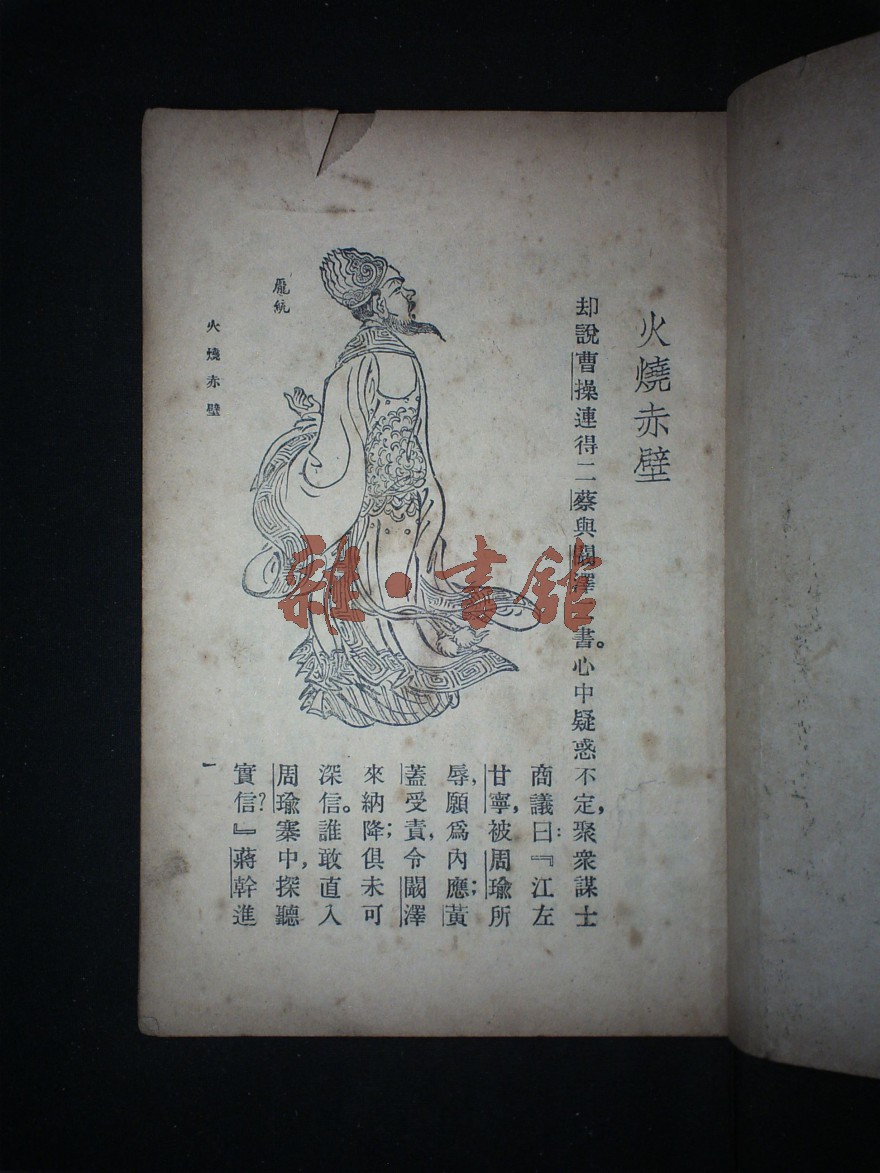 火燒赤壁
却說曹操連得二蔡與闞澤書。心中疑惑不定，聚衆謀士
商議曰：『江左
甘寧，被周瑜所
辱，願爲內應；黃
蓋受責，令闞澤
來納降；俱未可
深信。誰敢直入
周瑜寨中，探聽
實信？』蔣幹進
龐統
火燒赤壁
一
雜·書館